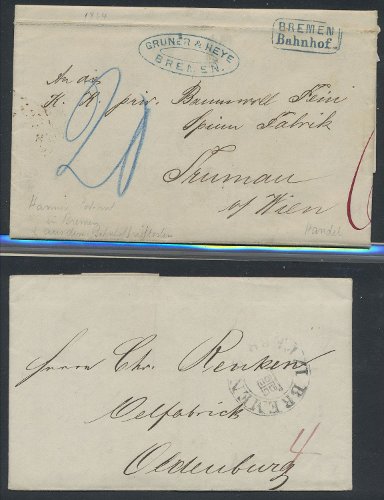 GRUNER & HEYE
BREMEN.
BREMEN
Bahnhof.
An die
K. K. priv. Baumwoll Fein
Spinn Fabrik
Trumau
b/ Wien
20
in Bremen
Handel
Herrn Chr. Renken
BREMEN
Oelfabrick
4
Oldenburg